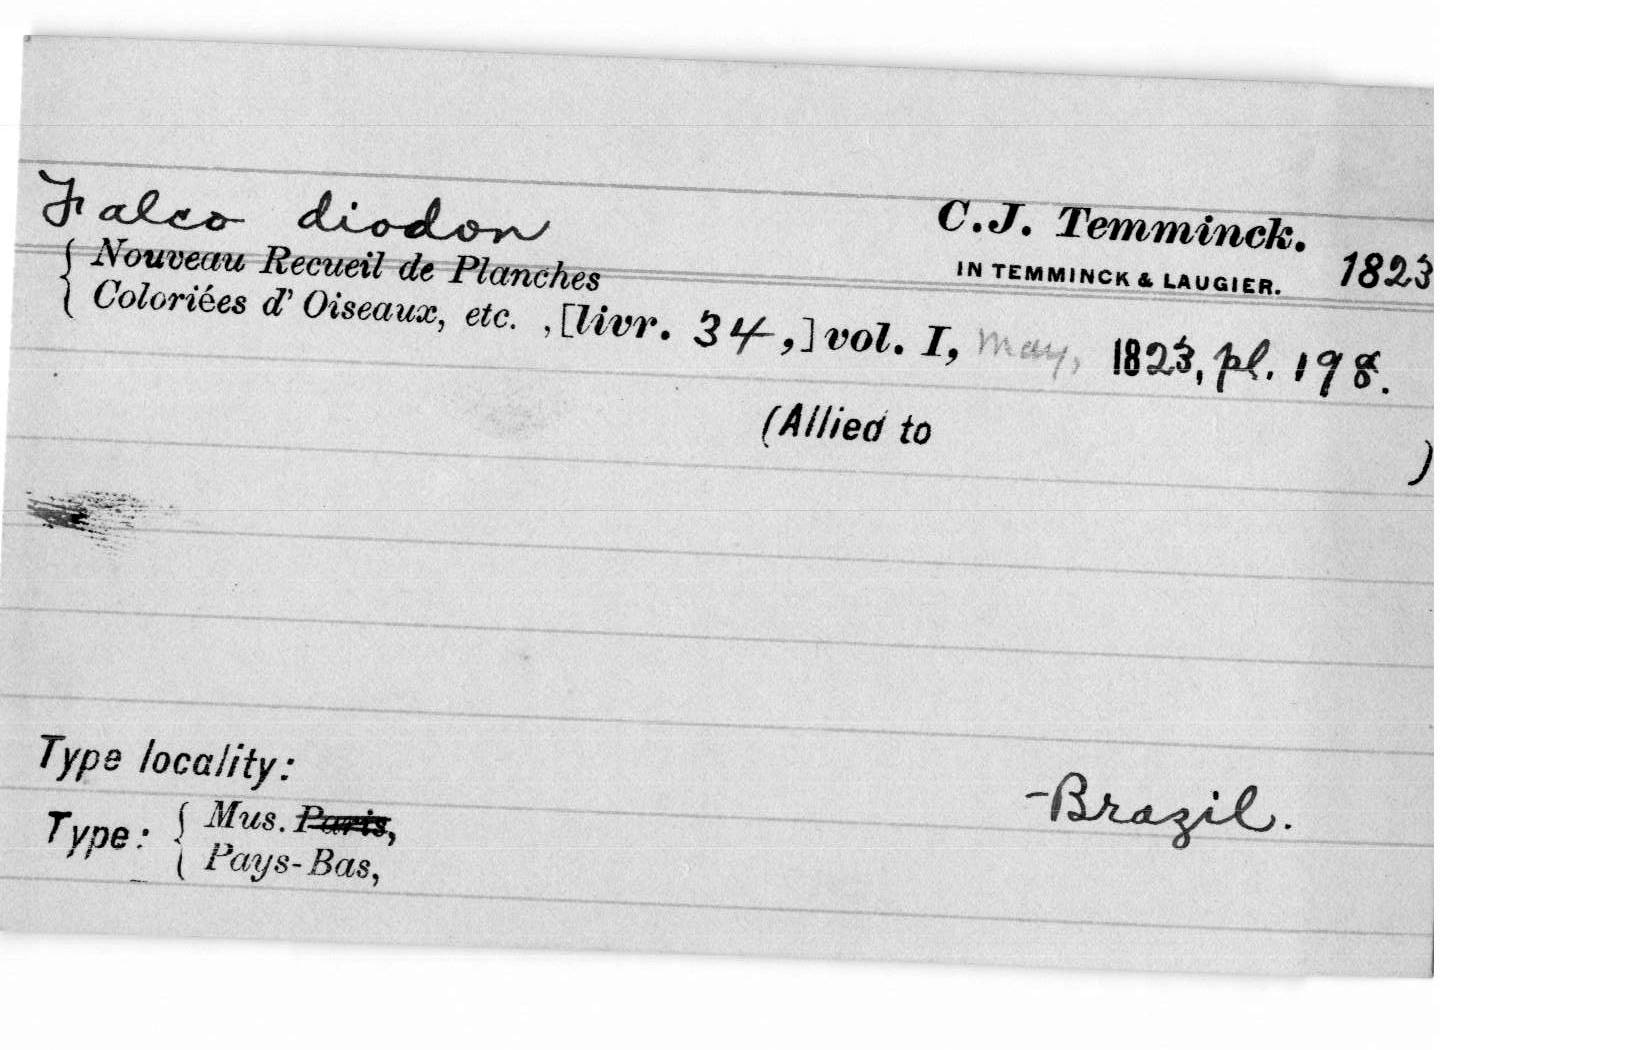 Falco diodon
C.J. Temminck.
IN TEMMINCK & LAUGIER. 1823
{ Nouveau Recueil de Planches
Coloriées d' Oiseaux, etc. , [livr. 34,] vol. I, May, 1823, pl. 198.
(Allied to )
Type locality:
-Brazil.
Type: { Mus. Paris,
Pays-Bas,